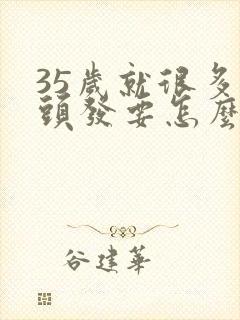 35歲就很多
頭發要怎麼
谷建華